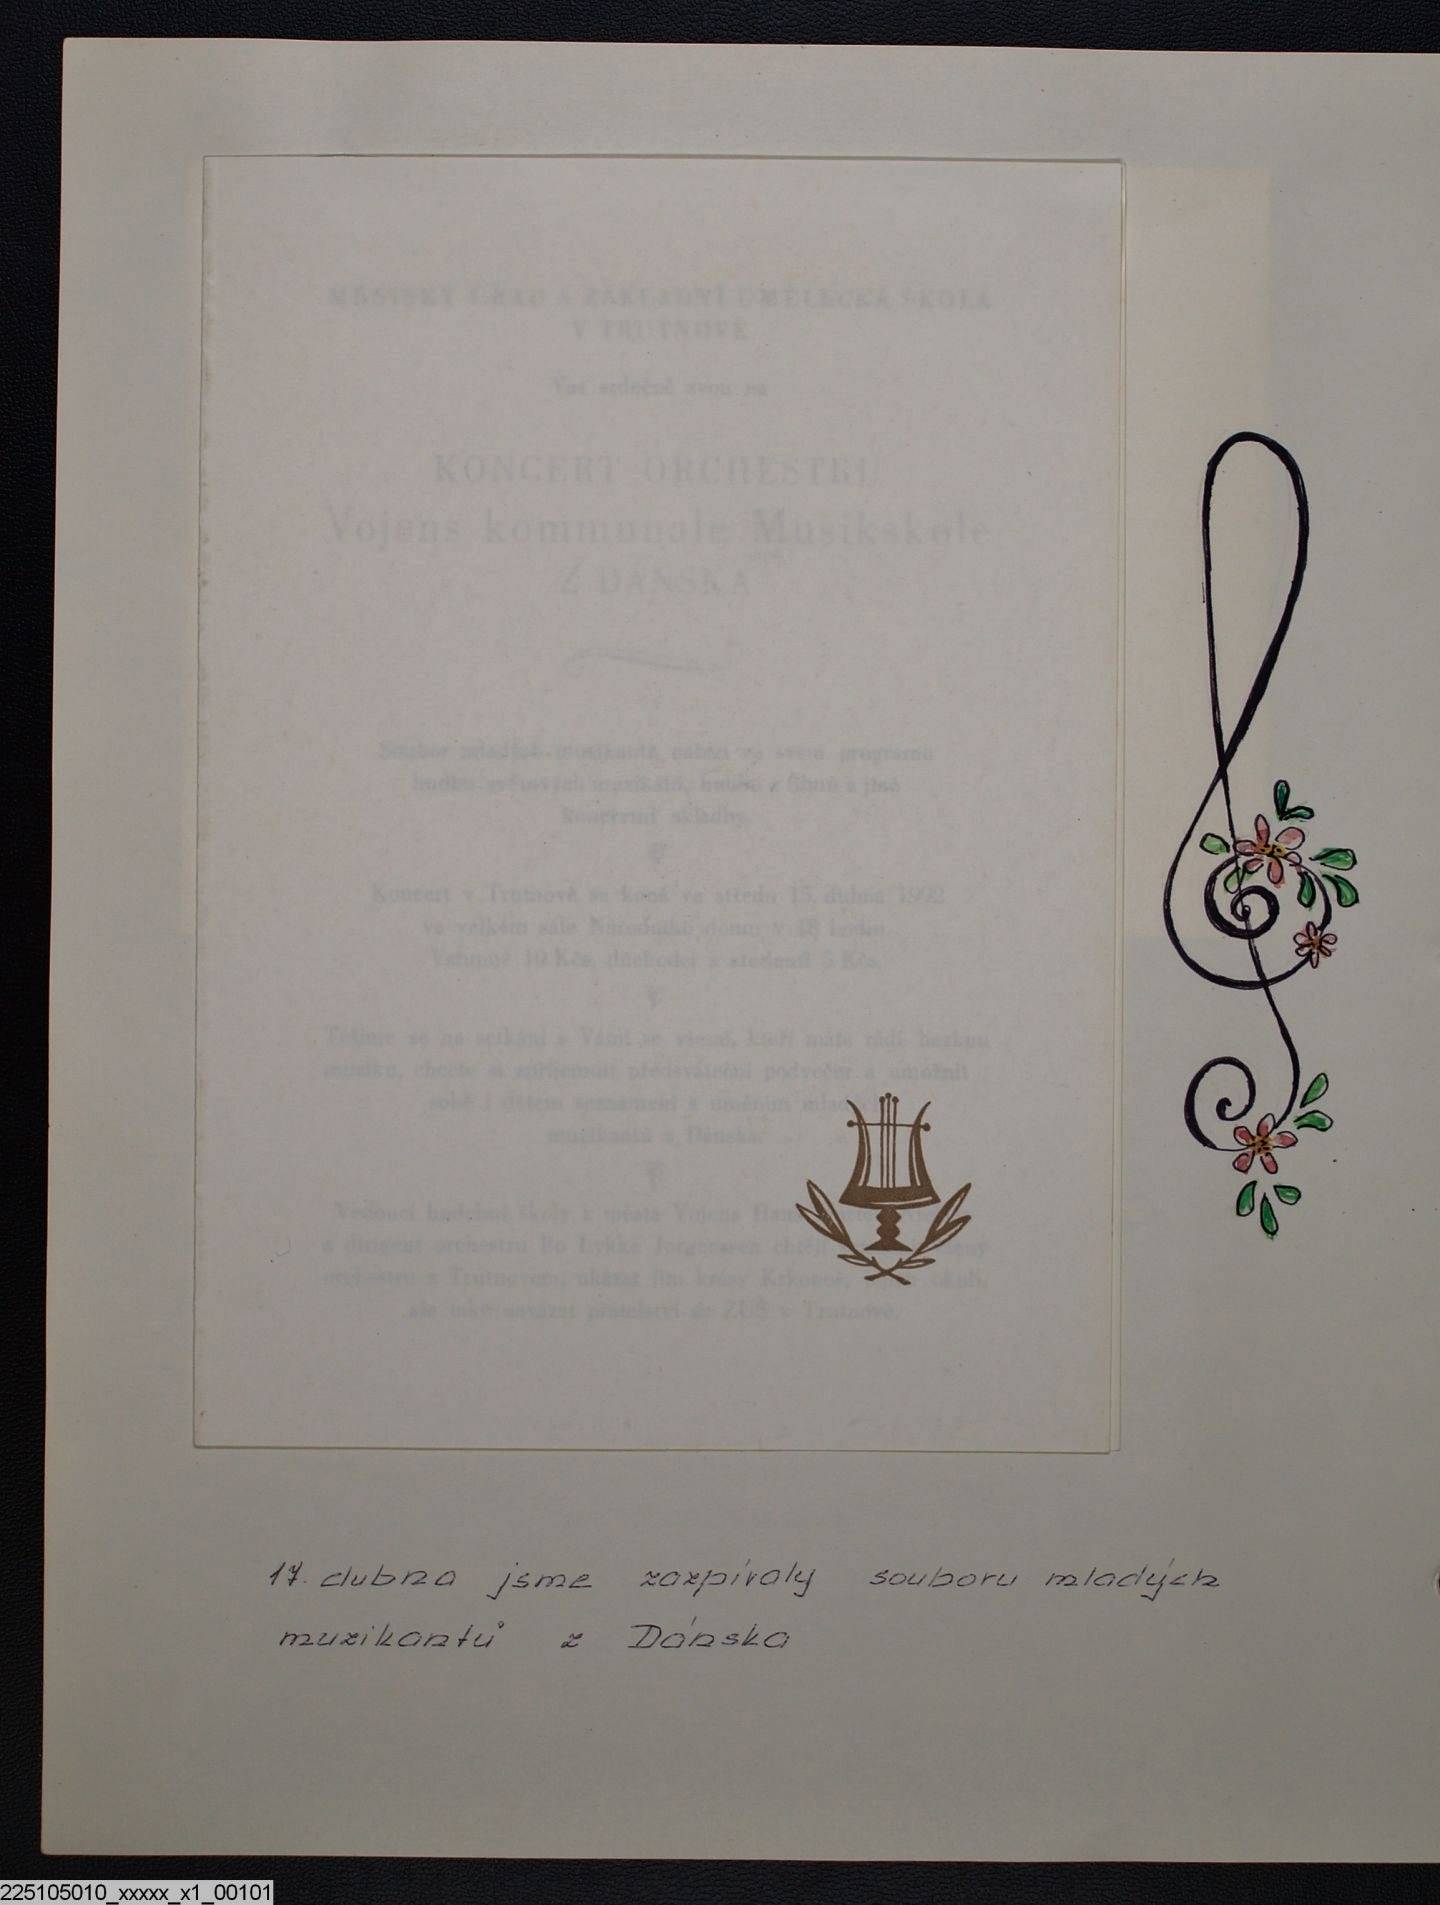 MĚSTSKÝ ÚŘAD A ZÁKLADNÍ UMĚLECKÁ ŠKOLA
V TRUTNOVĚ
Vás srdečně zvou na
KONCERT ORCHESTRU
Vojens kommunale Musikskole
Z DÁNSKA
Soubor mladých muzikantů nabízí ve svém programu
hudbu světových muzikálů, hudbu z filmů a jiné
koncertní skladby.
Koncert v Trutnově se koná ve středu 15. dubna 1992
ve velkém sále Národního domu v 18 hodin.
Vstupné 10 Kčs, důchodci a studenti 5 Kčs.
Těšíme se na setkání s Vámi se všemi, kteří máte rádi hezkou
muziku, chcete si zpříjemnit předsváteční podvečer a umožnit
sobě i dětem seznámení s uměním mladých
muzikantů z Dánska.
Vedoucí hudební školy z města Vojens Hans
a dirigent orchestru Bo Lykke Jorgensen chtějí
orchestru s Trutnovem, ukázat jim krásy Krkonoš, okolí,
ale také navázat přátelství se ZUŠ v Trutnově.
17. dubna jsme zazpívaly souboru mladých
muzikantů z Dánska
225105010_xxxxx_x1_00101